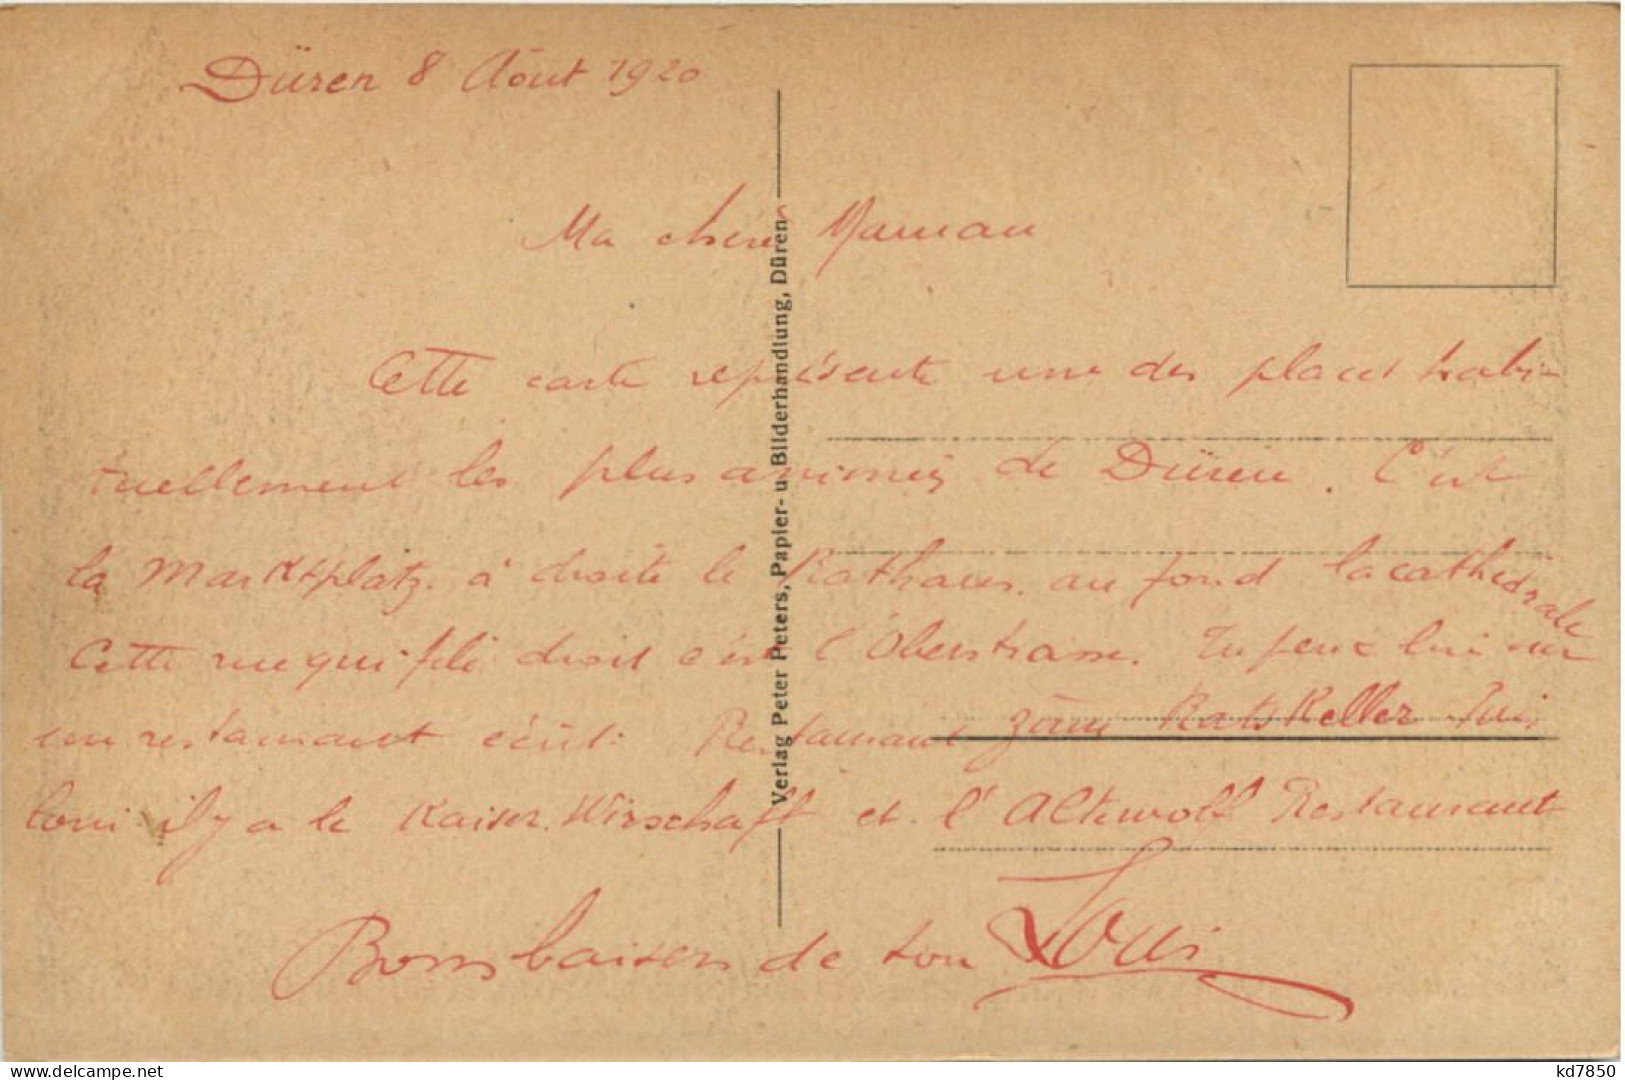 Düren 8 Août 1920
Ma chère Maman
Cette carte représente une des places habi-
tuellement les plus animées de Düren. C'est
la Marktplatz. à droite le Rathaus. au fond la cathédrale
Cette rue qui file droit c'est l'Oberstrasse. Tu peux lire sur
un restaurant écrit: Restaurant züm RatsKeller Puis
loin il y a le Kaiser. Wirschaft et l'Altewolf Restaurant
Bons baisers de ton Loui
Verlag Peter Peters, Papier- u. Bilderhandlung, Düren
delcampe.net
kd7850